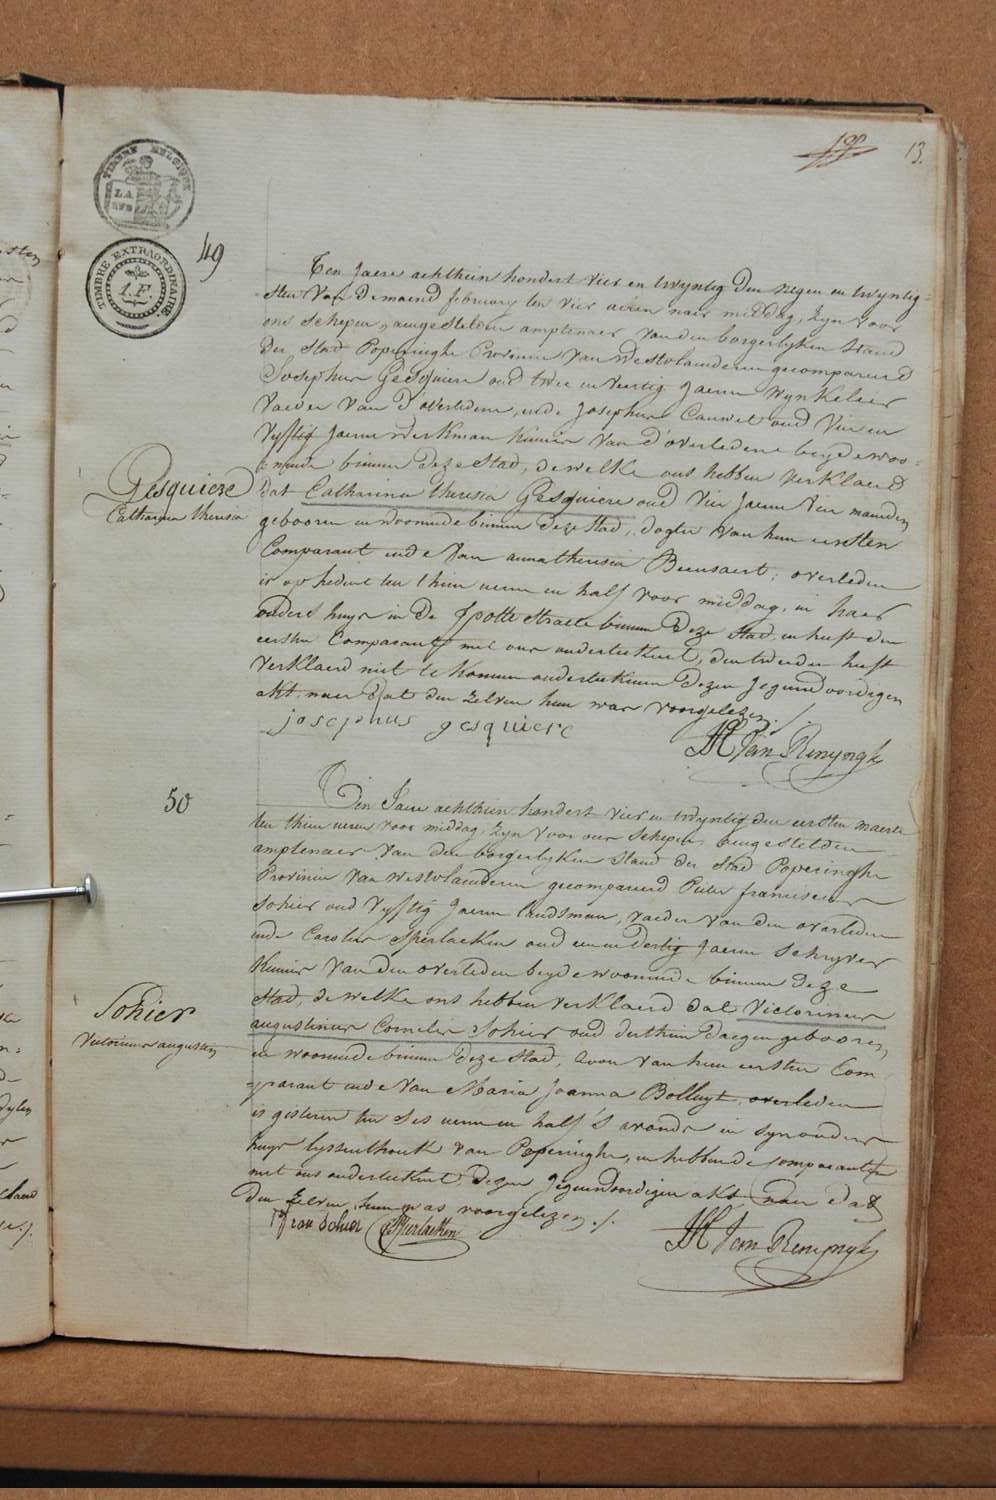 13.
TIMBRE BELGIQUE
TIMBRE EXTRAORDINAIRE.
1.F.
49
Gesquiere
Catharina Theresia
Ten Jaere achthien hondert vier en twyntig den negen en twyntig-
sten van de maend february ten vier uren naer middag, zyn voor
ons schepen, aengestelden amptenaer van den borgerlyken stand
der stad Poperinghe Provintie van Westvlaenderen gecompareerd
Josephus Gesquiere oud twee en veertig Jaeren Wynkelier
vaeder van d'overledene, ende Josephus Cauwel oud vier en
vyftig Jaeren werkman kennis van d'overledene beyde woo-
-nende binnen deze stad, de welke ons hebben verklaerd
dat Catharina Theresia Gesquiere oud vier Jaeren vier maenden
gebooren en woonende binnen deze stad, dogter van hun eersten
Comparant ende van anna theresia Beusaert, overleden
is op hedent ten thien uren en half voor middag, in haer
ouders huys in de Potte straete binnen deze stad, en heeft den
eersten Comparant met ons onderteekent, den tweeden heeft
verklaerd niet te konnen onderteekenen dezen Jegenwoordigen
akt naer dat den zelven hun was voorgelezen ./.
josephus gesquiere
Van Renynghe
50
Sohier
Victorinus augustin
Den Jaere achthien hondert vier en twyntig den eersten maerte
ten thien uren voor middag, zyn voor ons schepen, aengestelden
amptenaer van den borgerlyken stand der stad Poperinghe
Provintie van Westvlaenderen gecompareerd Pieter franciscus
Sohier oud vyftig Jaeren landsman, vaeder van den overleden
ende Carolus Sperlaeken oud een en dertig Jaeren schryver
kennis van den overleden beyde woonende binnen deze
stad, de welke ons hebben verklaerd dat Victorinus
augustinus Cornelis Sohier oud derthien daegen gebooren,
en woonende binnen deze stad, zoon van hun eersten Com-
-parant ende van Maria Joanna Bolluyt, overleden
is gisteren ten ses uren en half 's avonds in syn ouders
huys lyssenthouk van Poperinghe, en hebben de comparanten
met ons onderteekent dezen Jegenwoordigen akt naer dat
den zelven hun was voorgelezen ./.
P fran Sohier
C Sperlaeken
Van Renynghe